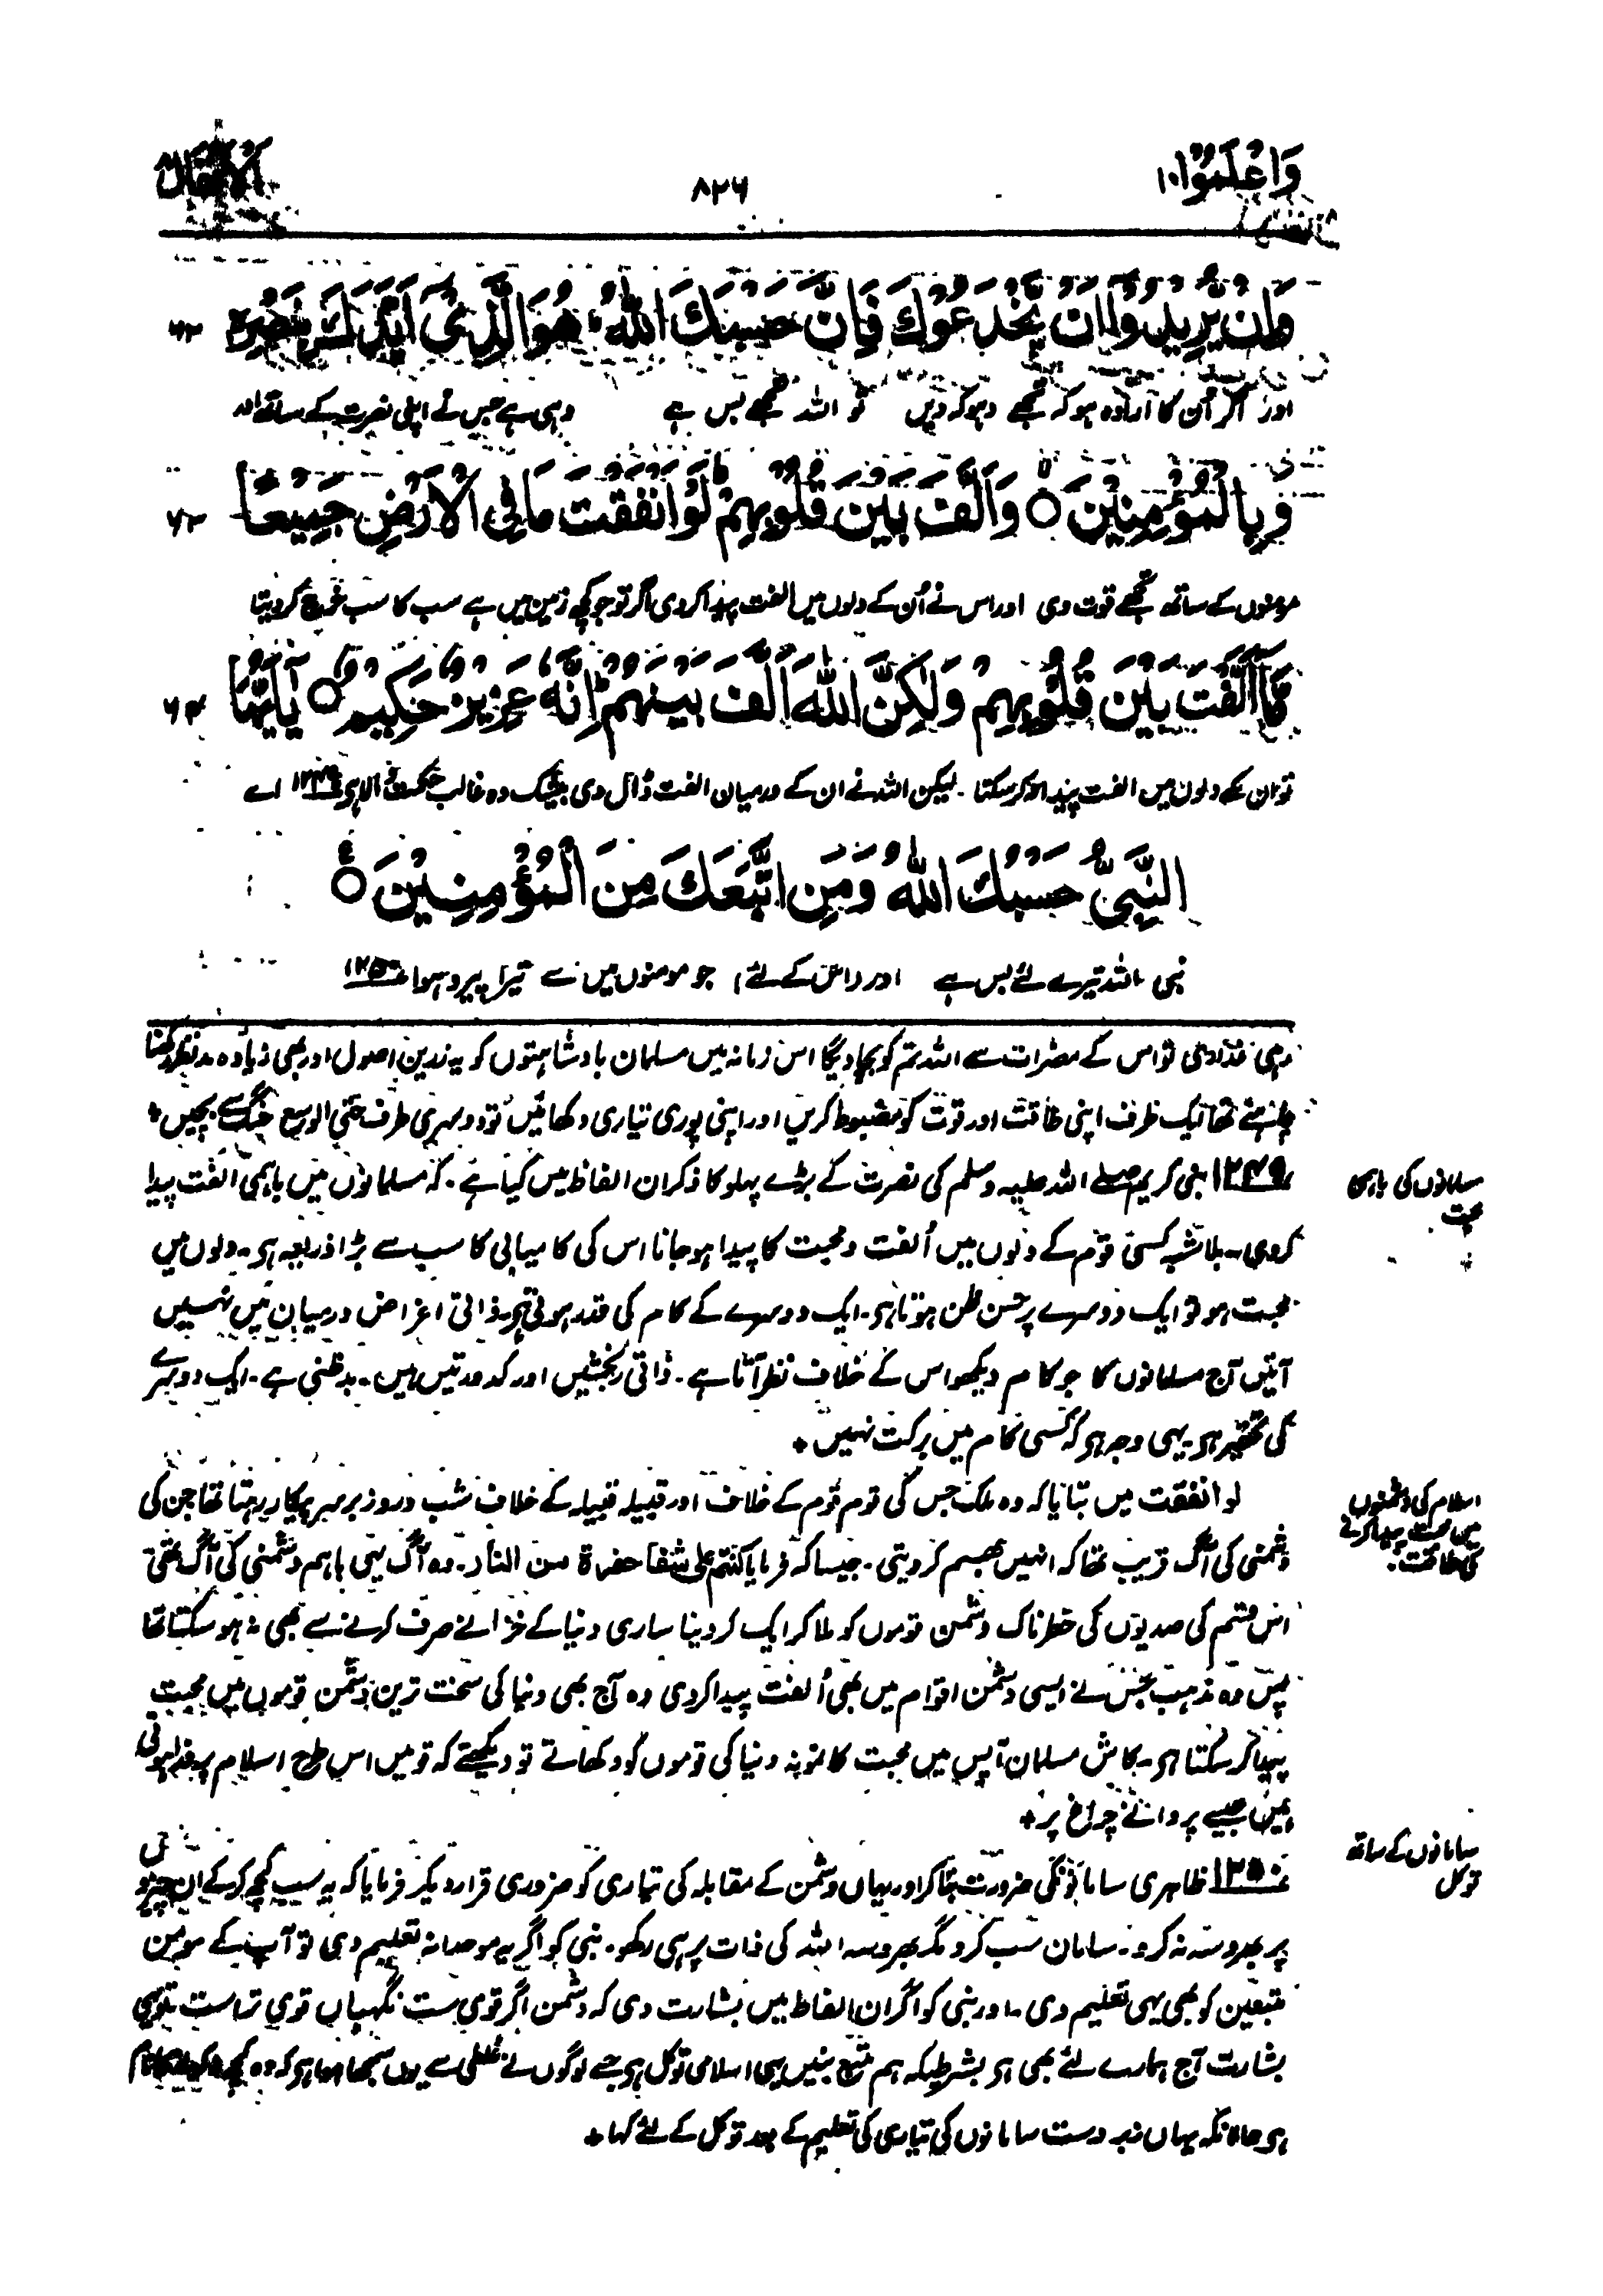 وَاعْلَمُوْا ۱۰
۸۲۶
الْاَنْفَال
وَاِنْ يُّرِيْدُوْۤا اَنْ يَّخْدَعُوْكَ فَاِنَّ حَسْبَكَ اللّٰهُ ؕ هُوَ الَّذِيْۤ اَيَّدَكَ بِنَصْرِهٖ
۶۲
اور اگر اُن کا ارادہ ہو کہ تجھے دہوکہ دیں تو اللہ تجھے بس ہے وہی ہے جس نے اپنی نصرت کے ساتھ اور
وَبِالْمُؤْمِنِيْنَ ۙ وَاَلَّفَ بَيْنَ قُلُوْبِهِمْ ؕ لَوْ اَنْفَقْتَ مَا فِي الْاَرْضِ جَمِيْعًا
۶۳
مومنوں کے ساتھ تجھے قوت دی اور اس نے اُن کے دلوں میں الفت پیدا کردی اگر تو جو کچھ زمین میں ہے سب کا سب خرچ کر دیتا
مَّاۤ اَلَّفْتَ بَيْنَ قُلُوْبِهِمْ وَلٰكِنَّ اللّٰهَ اَلَّفَ بَيْنَهُمْ ؕ اِنَّهٗ عَزِيْزٌ حَكِيْمٌ يٰۤاَيُّهَا
۶۴
تو ان کے دلوں میں الفت پیدا نہ کر سکتا ۔ لیکن اللہ نے ان کے درمیان الفت ڈال دی بیشک وہ غالب حکمت والا ہی ۱۲۴۹ اے
النَّبِيُّ حَسْبُكَ اللّٰهُ وَمَنِ اتَّبَعَكَ مِنَ الْمُؤْمِنِيْنَ
نبی اللہ تیرے لئے بس ہے اور (اس کے لئے) جو مومنوں میں سے تیرا پیرو ہوا ۱۲۵۰
رہی غداری تو اس کے مضرات سے اللہ تم کو بچا دیگا اس زمانہ میں مسلمان بادشاہتوں کو یہ زرین اصول اور بھی زیادہ مدنظر رکھنا
چاہئے تھا ایک طرف اپنی طاقت اور قوت کو مضبوط کریں اور اپنی پوری تیاری دکھائیں تو دوسری طرف حتی الوسع جنگ سے بچیں +
۱۲۴۹ نبی کریم صلے اللہ علیہ وسلم کی نصرت کے بڑے پہلو کا ذکر ان الفاظ میں کیا ہے ۔ کہ مسلمانوں میں باہمی الفت پیدا
مسلمانوں کی باہمی
محبت
کردی ۔ بلا شبہ کسی قوم کے دلوں میں اُلفت و محبت کا پیدا ہو جانا اس کی کامیابی کا سب سے بڑا ذریعہ ہی ۔ دلوں میں
محبت ہو تو ایک دوسرے پر حسن ظن ہوتا ہی ۔ ایک دوسرے کے کام کی قدر ہوتی ہی ۔ ذاتی اغراض درمیان میں نہیں
آتیں آج مسلمانوں کا جو کام دیکھو اس کے خلاف نظر آتا ہے ۔ ذاتی رنجشیں اور کدورتیں ہیں ۔ بدظنی ہے ۔ ایک دوسرے
کی تحقیر ہی ۔ یہی وجہ ہی کہ کسی کام میں برکت نہیں +
لو انفقت میں بتایا کہ وہ ملک جس کی قوم قوم کے خلاف اور قبیلہ قبیلہ کے خلاف شب و روز برسر پیکار رہتا تھا جن کی
اسلام کی دشمنوں
میں محبت پیدا کرنے
کی طاقت
دشمنی کی آگ قریب تھا کہ انہیں بھسم کر دیتی ۔ جیسا کہ فرمایا کنتم علی شفا حفرۃ من النار ۔ وہ آگ یہی باہم دشمنی کی آگ تھی
اس قسم کی صدیوں کی خطرناک دشمن قوموں کو ملا کر ایک کر دینا ساری دنیا کے خزانے صرف کرنے سے بھی نہ ہو سکتا تھا
پس وہ مذہب جس نے ایسی دشمن اقوام میں بھی اُلفت پیدا کردی وہ آج بھی دنیا کی سخت ترین دشمن قوموں میں محبت
پیدا کر سکتا ہی ۔ کاش مسلمان آپس میں محبت کا نمونہ دنیا کی قوموں کو دکھاتے تو دیکھتے کہ قومیں اس طرح اسلام پر فدا ہوتی
ہیں جیسے پروانے چراغ پر +
۱۲۵۰ ظاہری سامانوں کی ضرورت بتا کر اور یہاں دشمن کے مقابلہ کی تیاری کو ضروری قرار دیکر فرمایا کہ یہ سب کچھ کر کے ان چیزوں
سامانوں کے ساتھ
توکل
پر بھروسہ نہ کرو ۔ سامان سب کرو مگر بھروسہ اللہ کی ذات پر ہی رکھو ۔ نبی کو اگر یہ موحدانہ تعلیم دی تو آپ کے مومن
متبعین کو بھی یہی تعلیم دی ۔ اور نبی کو اگر ان الفاظ میں بشارت دی کہ دشمن اگر قوی ست نگہباں قوی تر است تو یہی
بشارت آج ہمارے لئے بھی ہی بشرطیکہ ہم متبع بنیں یہی اسلامی توکل ہی جسے لوگوں نے غلطی سے یوں سمجھا ہوا ہی کہ وہ کچھ
ہی حالانکہ یہاں زبردست سامانوں کی تیاری کی تعلیم کے بعد توکل کے لئے کہا +